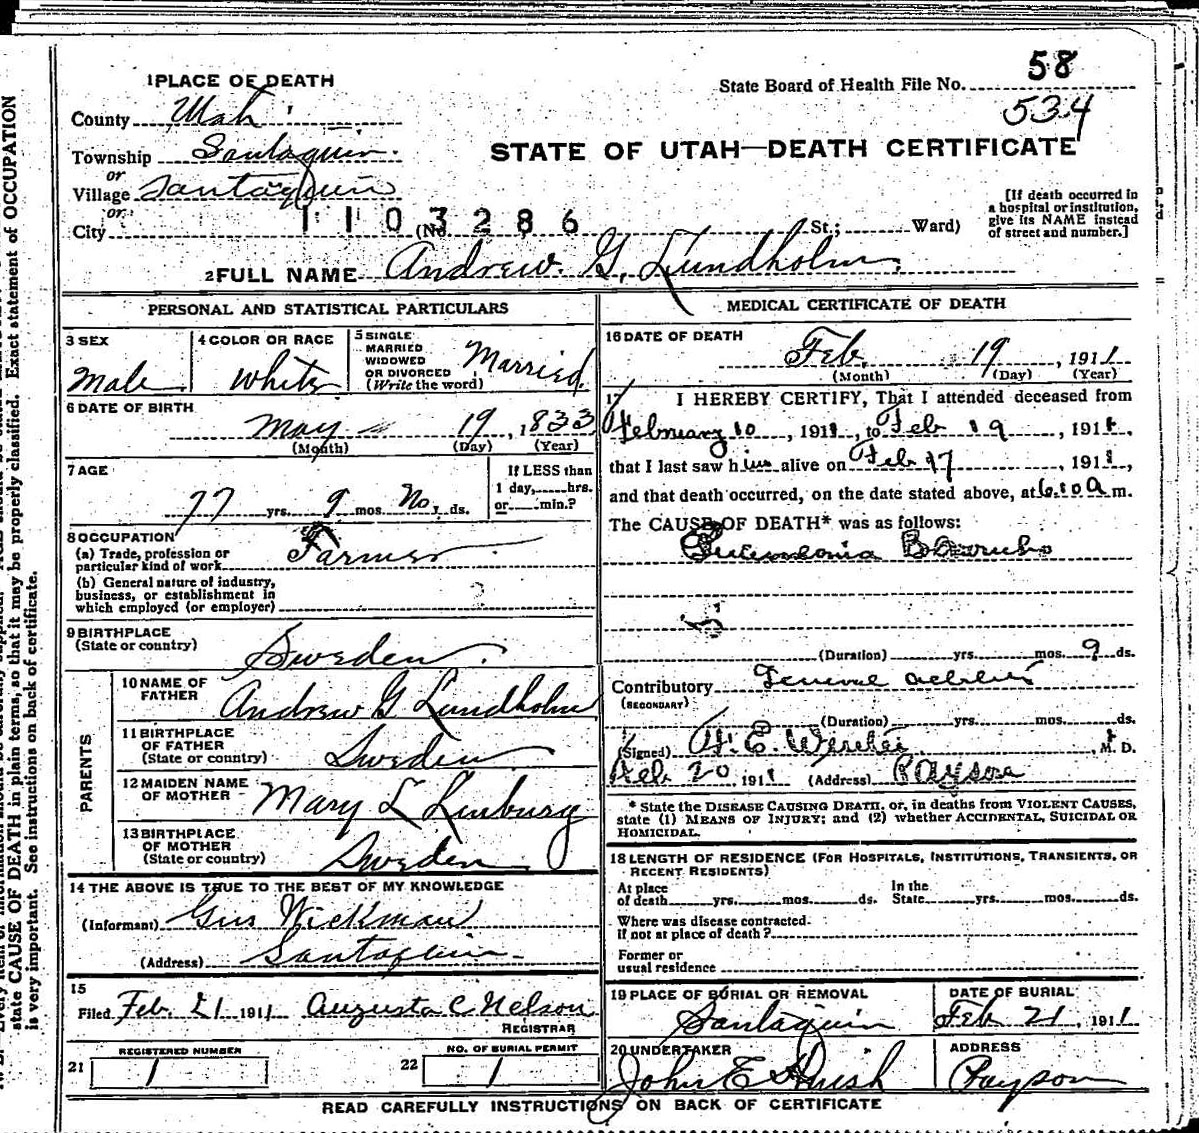 state CAUSE OF DEATH in plain terms, so that it may be properly classified. Exact statement of OCCUPATION
is very important. See instructions on back of certificate.
1 PLACE OF DEATH
State Board of Health File No. 58
534
County Utah
Township Santaquin
or
Village Santaquin
or
City (No. St.; Ward)
1103286
STATE OF UTAH—DEATH CERTIFICATE
[If death occurred in
a hospital or institution,
give its NAME instead
of street and number.]
2 FULL NAME Andrew G. Lundholm
PERSONAL AND STATISTICAL PARTICULARS
3 SEX
Male
4 COLOR OR RACE
White
5 SINGLE
MARRIED
WIDOWED
OR DIVORCED
(Write the word)
Married
6 DATE OF BIRTH
May 19, 1833
(Month) (Day) (Year)
7 AGE
77 yrs. 9 mos. No. ds.
If LESS than
1 day, hrs.
or min.?
8 OCCUPATION
(a) Trade, profession or
particular kind of work Farmer
(b) General nature of industry,
business, or establishment in
which employed (or employer)
9 BIRTHPLACE
(State or country)
Sweden
PARENTS
10 NAME OF
FATHER
Andrew G Lundholm
11 BIRTHPLACE
OF FATHER
(State or country)
Sweden
12 MAIDEN NAME
OF MOTHER
Mary L
13 BIRTHPLACE
OF MOTHER
(State or country)
Sweden
14 THE ABOVE IS TRUE TO THE BEST OF MY KNOWLEDGE
(Informant) Gus Wickman
(Address) Santaquin
15
Filed Feb. 21 1911 Augusta C Nelson
REGISTRAR
21
REGISTERED NUMBER
1
22
NO. OF BURIAL PERMIT
1
MEDICAL CERTIFICATE OF DEATH
16 DATE OF DEATH
Feb. 19, 1911
(Month) (Day) (Year)
17 I HEREBY CERTIFY, That I attended deceased from
February 10, 1911, to Feb 19, 1911,
that I last saw him alive on Feb 17, 1911,
and that death occurred, on the date stated above, at 6:10 a m.
The CAUSE OF DEATH* was as follows:
Pneumonia
(Duration) yrs. mos. 9 ds.
Contributory General
(SECONDARY)
(Duration) yrs. mos. ds.
(Signed) E. M. D.
Feb. 20 1911 (Address) Payson
* State the DISEASE CAUSING DEATH, or, in deaths from VIOLENT CAUSES,
state (1) MEANS OF INJURY; and (2) whether ACCIDENTAL, SUICIDAL OR
HOMICIDAL.
18 LENGTH OF RESIDENCE (FOR HOSPITALS, INSTITUTIONS, TRANSIENTS, OR
RECENT RESIDENTS)
At place
of death yrs. mos. ds.
In the
State yrs. mos. ds.
Where was disease contracted
if not at place of death?
Former or
usual residence
19 PLACE OF BURIAL OR REMOVAL
Santaquin
DATE OF BURIAL
Feb 21, 1911
20 UNDERTAKER
John E Huish
ADDRESS
Payson
READ CAREFULLY INSTRUCTIONS ON BACK OF CERTIFICATE